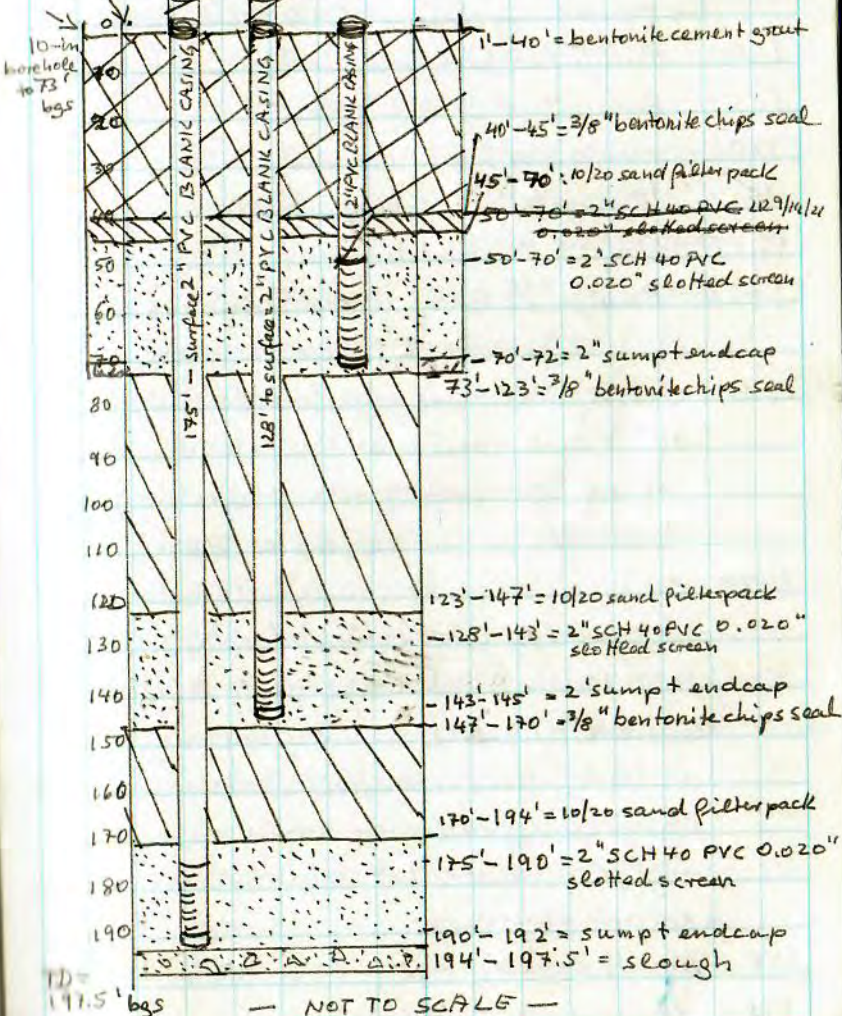 0
10-in
borehole
to 73'
bgs
10
20
30
40
50
60
70
80
90
100
110
120
130
140
150
160
170
180
190
TD=
197.5' bgs
175' - surface 2" PVC BLANK CASING
128' to surface = 2" PVC BLANK CASING
2" PVC BLANK CASING
1'-40' = bentonite cement grout
40'-45' = 3/8" bentonite chips seal
45'-70': 10/20 sand filter pack
50'-70' = 2" SCH 40 PVC 9/19/21
0.020" slotted screen
50'-70' = 2" SCH 40 PVC
0.020" slotted screen
70'-72' = 2" sump + endcap
73'-123' = 3/8" bentonite chips seal
123'-147' = 10/20 sand filterpack
128'-143' = 2" SCH 40 PVC 0.020"
slotted screen
143'-145' = 2' sump + endcap
147'-170' = 3/8" bentonite chips seal
170'-194' = 10/20 sand filter pack
175'-190' = 2" SCH 40 PVC 0.020"
slotted screen
190'-192' = sump + endcap
194'-197.5' = slough
— NOT TO SCALE —